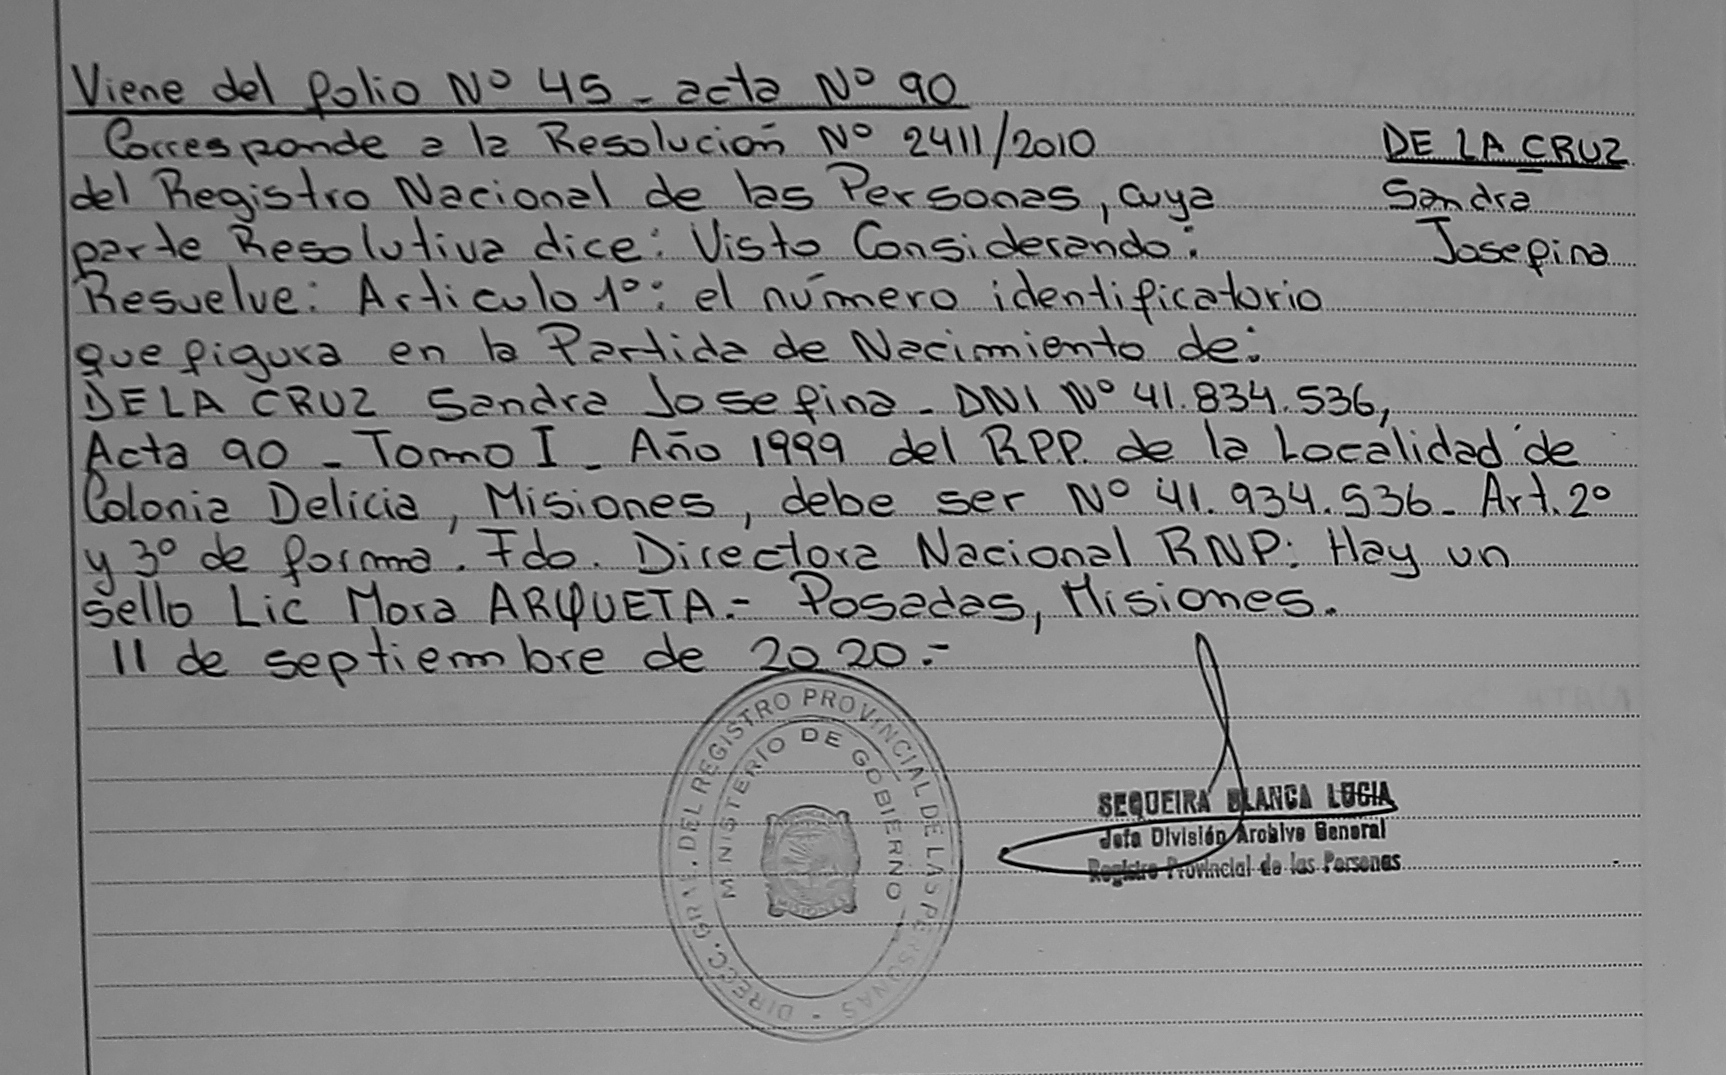 Viene del folio Nº 45 - acta Nº 90
Corresponde a la Resolución Nº 2411/2010
del Registro Nacional de las Personas, cuya
parte Resolutiva dice: Visto Considerando:
Resuelve: Articulo 1º: el número identificatorio
que figura en la Partida de Nacimiento de:
DE LA CRUZ Sandra Josefina - DNI Nº 41.834.536,
Acta 90 - Tomo I - Año 1999 del RPP. de la Localidad de
Colonia Delicia, Misiones, debe ser Nº 41.934.536 - Art. 2º
y 3º de forma. Fdo. Directora Nacional RNP: Hay un
sello Lic Mora ARQUETA.- Posadas, Misiones.
11 de septiembre de 2020.-
DE LA CRUZ
Sandra
Josefina
DIRECC. GRAL. DEL REGISTRO PROVINCIAL DE LAS PERSONAS -
MINISTERIO DE GOBIERNO
MISIONES
SEQUEIRA BLANCA LUCIA
Jefa División Archivo General
Registro Provincial de las Personas